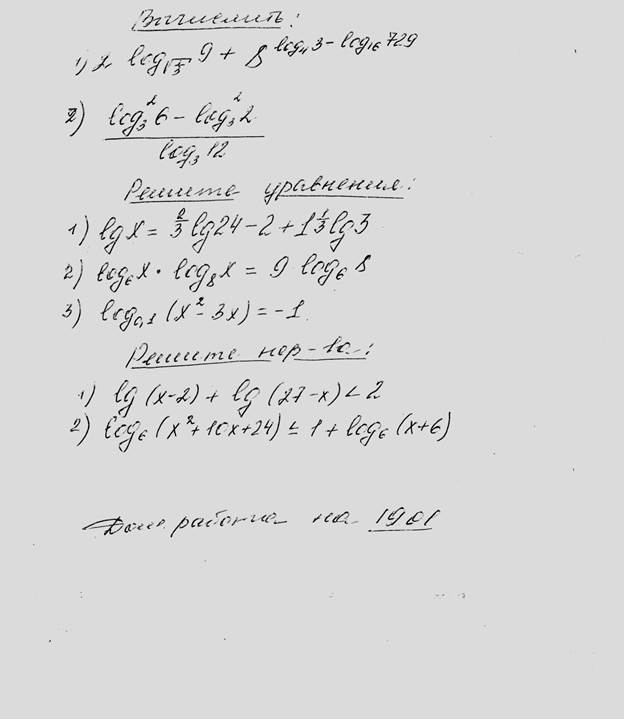 Вычислить:
1) 2 log_{√3} 9 + 8^{log₄3 – log₁₆729}
2) (log₃²6 – log₃²2) / log₃12
Решите уравнения:
1) lg x = 2/3 lg 24 – 2 + 1 1/3 lg 3
2) log₆x · log₈x = 9 log₆8
3) log₀,₁ (x² – 3x) = –1
Решите нер-ва:
1) lg (x–2) + lg (27–x) < 2
2) log₆ (x² + 10x + 24) ≤ 1 + log₆ (x+6)
Дом. работа на 19 01